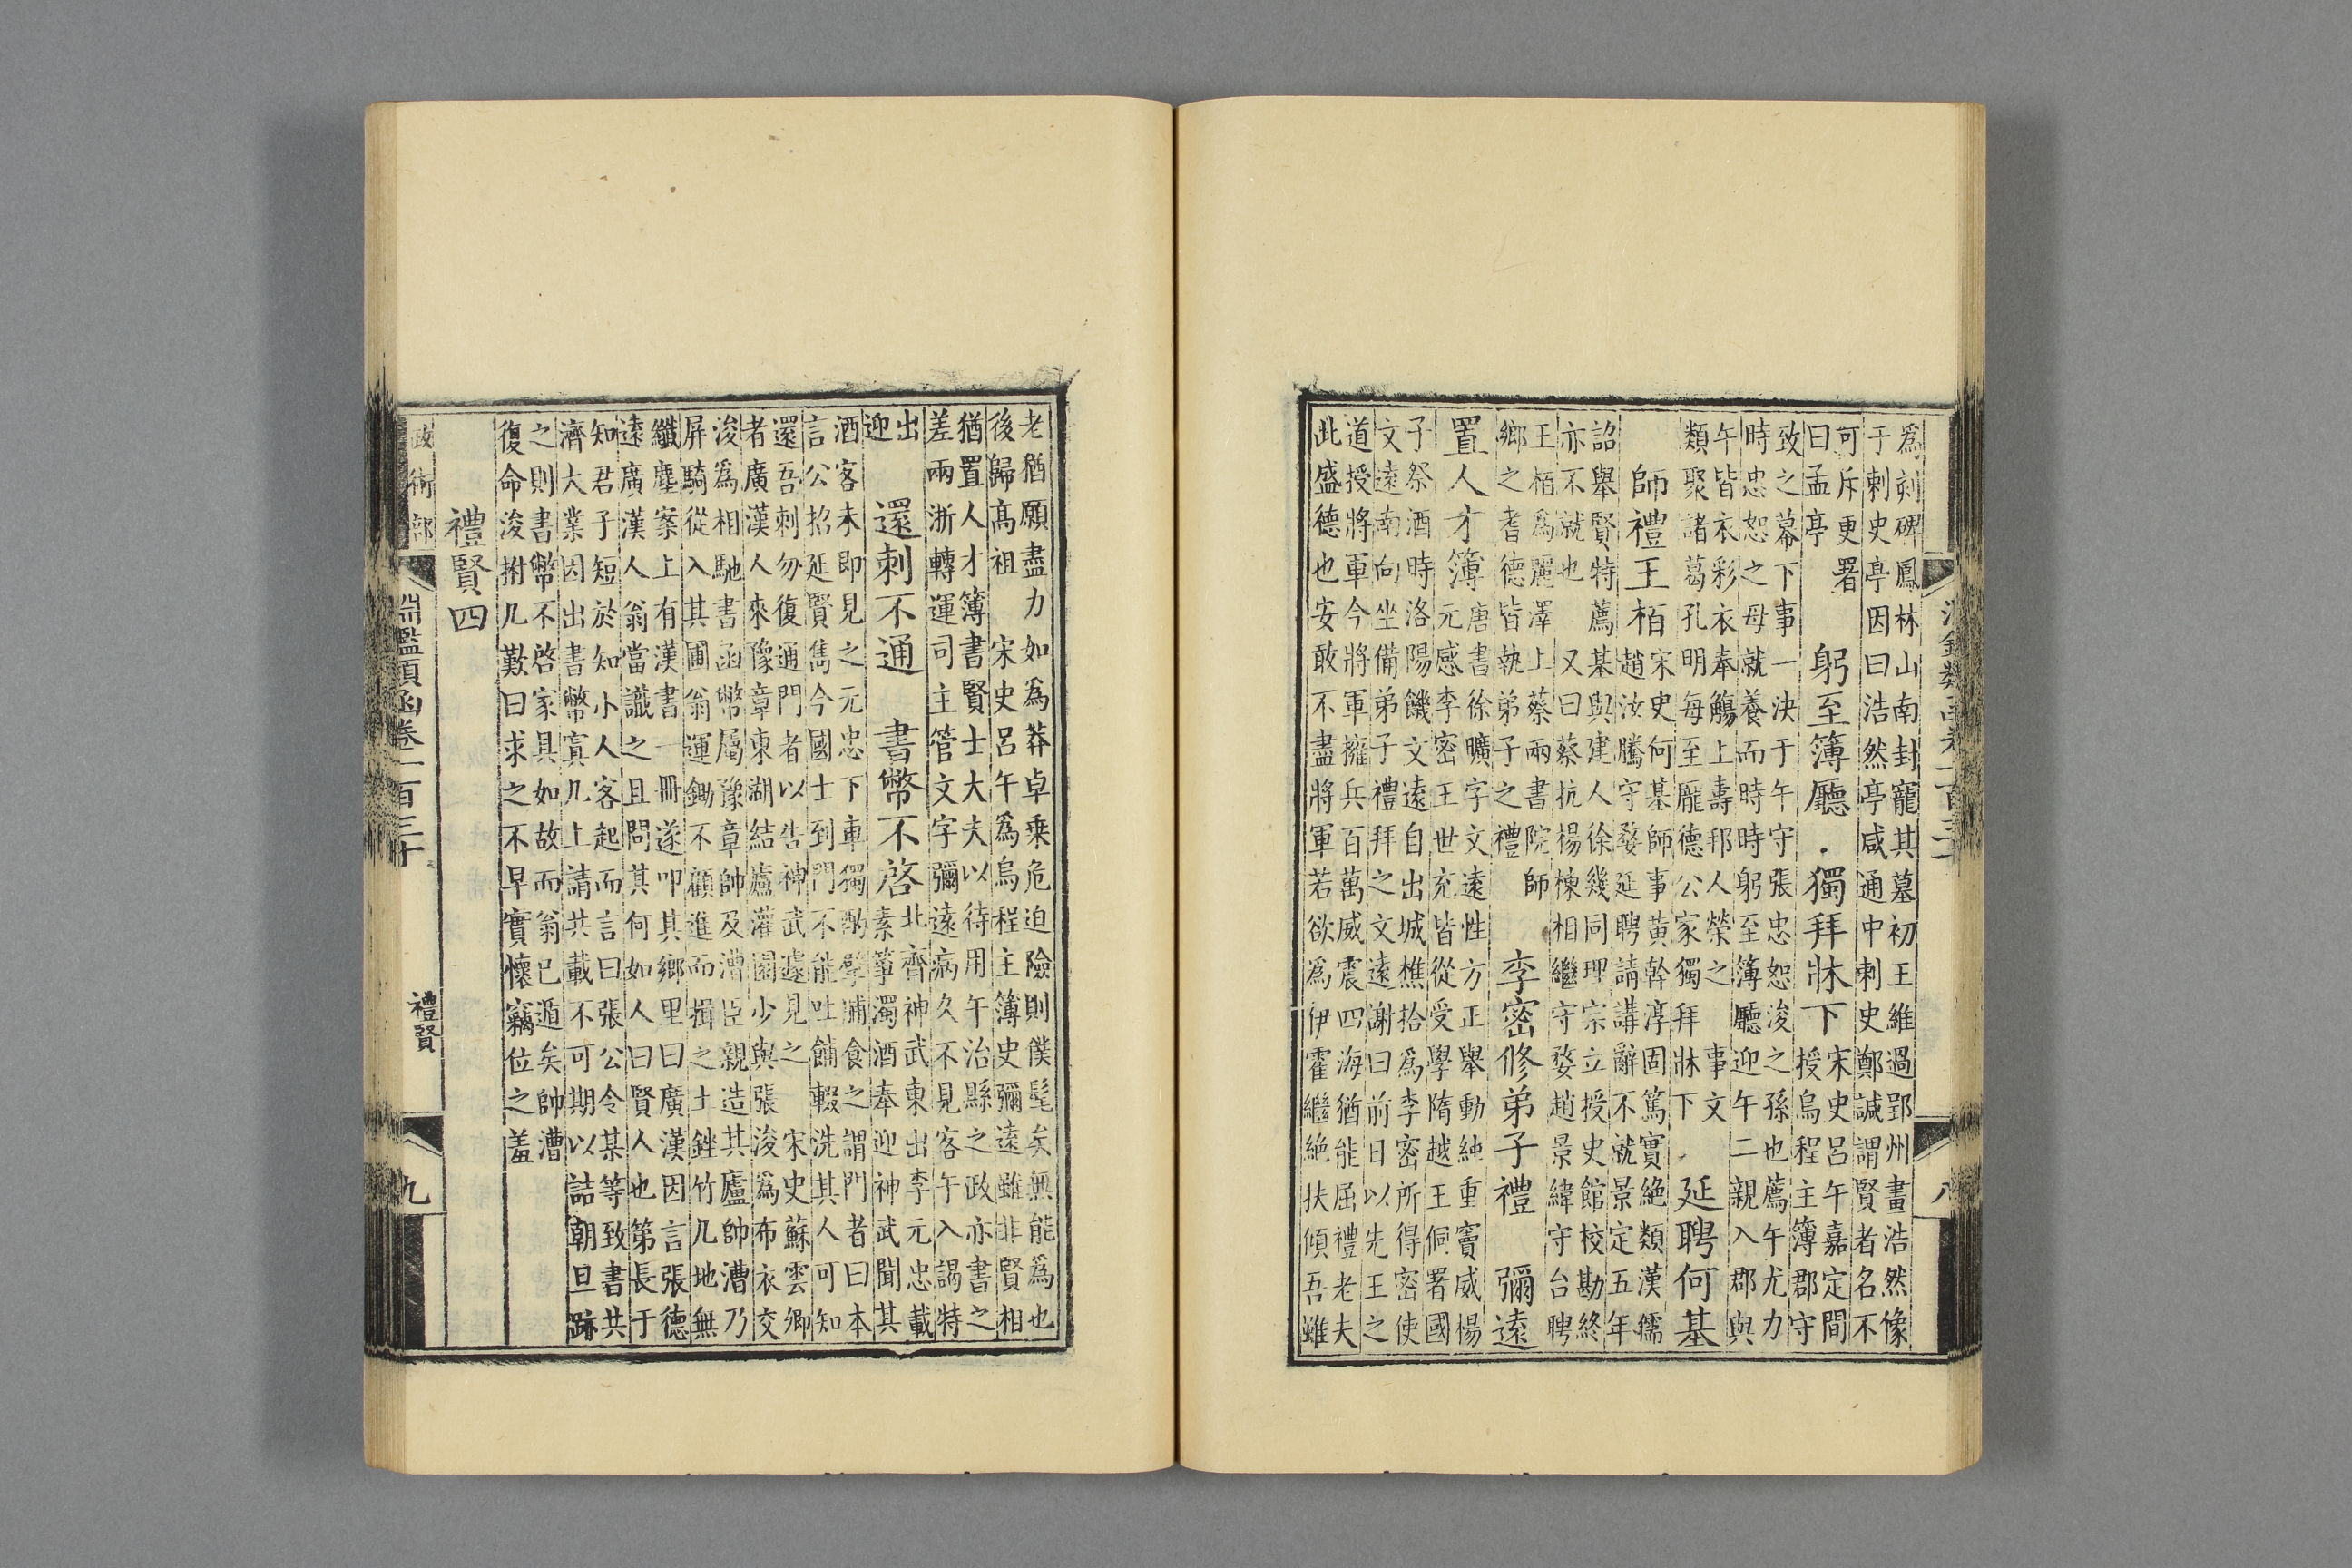 淵鑑類函卷一百三十 八
爲刻碑鳳林山南封寵其墓初王維過郢州畫浩然像
于刺史亭因曰浩然亭咸通中刺史鄭諴謂賢者名不
可斥更署
曰孟亭
躬至簿廳 獨拜牀下
宋史呂午嘉定間
授烏程主簿郡守
致之幕下事一決于午守張忠恕浚之孫也薦午尤力
時忠恕之母就養而時時躬至簿廳迎午二親入郡與
午皆衣彩衣奉觴上壽邦人榮之 事文
類聚諸葛孔明每至龐德公家獨拜牀下
延聘何基
師禮王栢
宋史何基師事黃幹淳固篤實絶類漢儒
趙汝騰守婺延聘請講辭不就景定五年
詔舉賢特薦基與建人徐幾同理宗立授史館校勘終
亦不就也 又曰蔡抗楊棟相繼守婺趙景緯守台聘
王栢爲麗澤上蔡兩書院師
鄉之耆德皆執弟子之禮
李密修弟子禮 彌遠
置人才簿
唐書徐曠字文遠性方正舉動純重竇威楊
元感李密王世充皆從受學隋越王侗署國
子祭酒時洛陽饑文遠自出城樵拾爲李密所得密使
文遠南向坐備弟子禮拜之文遠謝曰前日以先王之
道授將軍今將軍擁兵百萬威震四海猶能屈禮老夫
此盛德也安敢不盡將軍若欲爲伊霍繼絶扶傾吾雖
老猶願盡力如爲莽卓乗危迫險則僕髦矣無能爲也
後歸高祖 宋史呂午爲烏程主簿史彌遠雖非賢相
猶置人才簿書賢士大夫以待用午治縣之政亦書之
差兩浙轉運司主管文字彌遠病久不見客午入謁特
出
迎
還刺不通 書幣不啓
北齊神武東出李元忠載
素箏濁酒奉迎神武聞其
酒客未即見之元忠下車獨酌擘脯食之謂門者曰本
言公招延賢雋今國士到門不能吐餔輟洗其人可知
還吾刺勿復通門者以告神武遽見之 宋史蘇雲卿
者廣漢人來豫章東湖結廬灌園少與張浚爲布衣交
浚爲相馳書函幣屬豫章帥及漕臣親造其廬帥漕乃
屏騎從入其圃翁運鋤不顧進而揖之土銼竹几地無
纖塵案上有漢書一冊遂叩其鄉里曰廣漢因言張德
遠廣漢人翁當識之且問其何如人曰賢人也第長于
知君子短於知小人客起而言曰張公令某等致書共
濟大業因出書幣寘几上請共載不可期以詰朝旦跡
之則書幣不啓家具如故而翁已遁矣帥漕
復命浚拊几歎曰求之不早實懷竊位之羞
禮賢四
政術部 淵鑑類函卷一百三十 禮賢 九